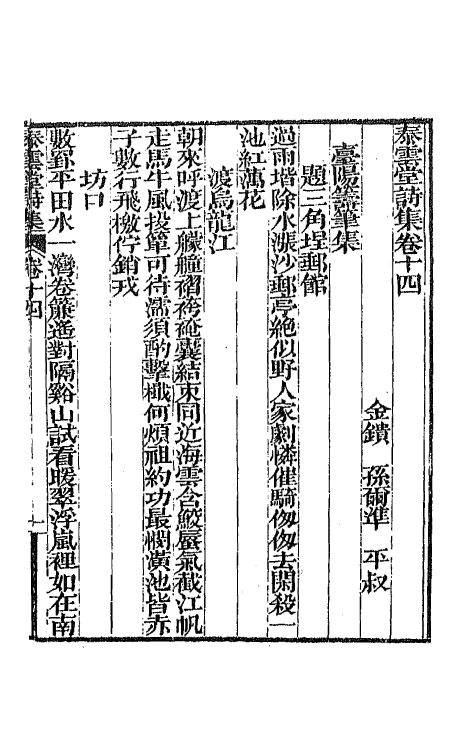 泰雲堂詩集卷十四
金鐀　孫爾準　平叔
臺陽籌筆集
題三角埕郵館
過雨堦除水漲沙郵亭絶似野人家劇憐催騎匆匆去閑殺一
池紅藕花
渡烏龍江
朝來呼渡上艨艟褶袴袘囊結束同近海雲含鮫蜃氣截江帆
走馬牛風投簞可待濡須酌擊檝何煩祖約功最憫潢池皆赤
子數行飛檄佇銷戎
坊口
數弓平田水一灣卷簾遙對隔谿山試看暖翠浮嵐裡如在南
泰雲堂詩集　卷十四　一